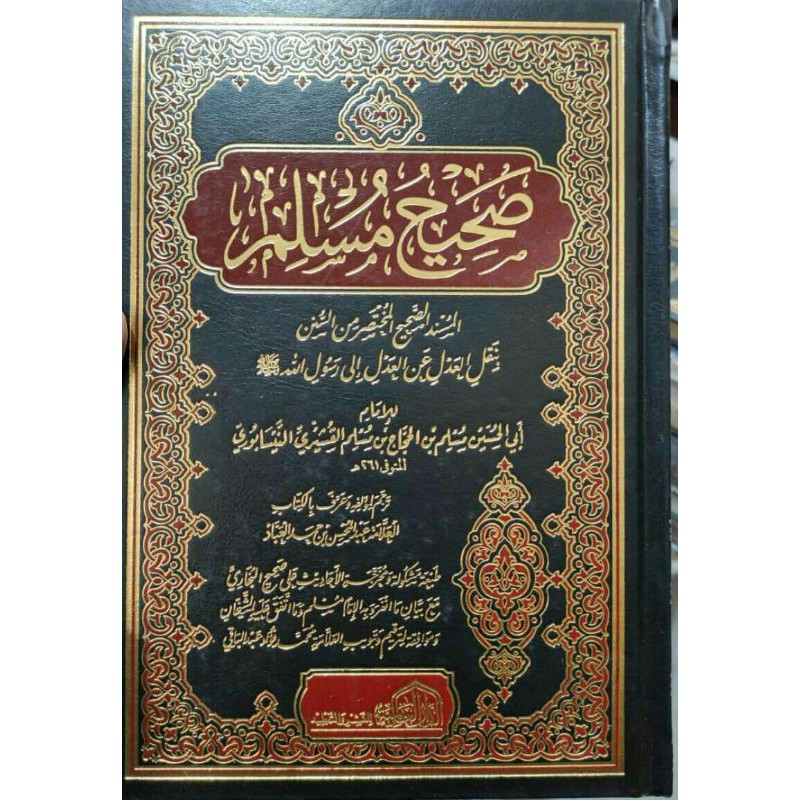 صَحِيحُ مُسْلِم
المسند الصحيح المختصر من السنن
بنقل العدل عن العدل إلى رسول الله ﷺ
للإمام
أبي الحسين مسلم بن الحجاج بن مسلم القشيري النيسابوري
المتوفى ٢٦١هـ
ترجم لمؤلفه وعرف بالكتاب
العلامة عبد المحسن بن حمد العباد
طبعة مشكولة ومخرجة الأحاديث على صحيح البخاري
مع بيان ما انفرد به الإمام مسلم وما اتفق عليه الشيخان
وموافقة لترقيم وتبويب العلامة محمد فؤاد عبد الباقي
الدار العالمية للنشر والتوزيع